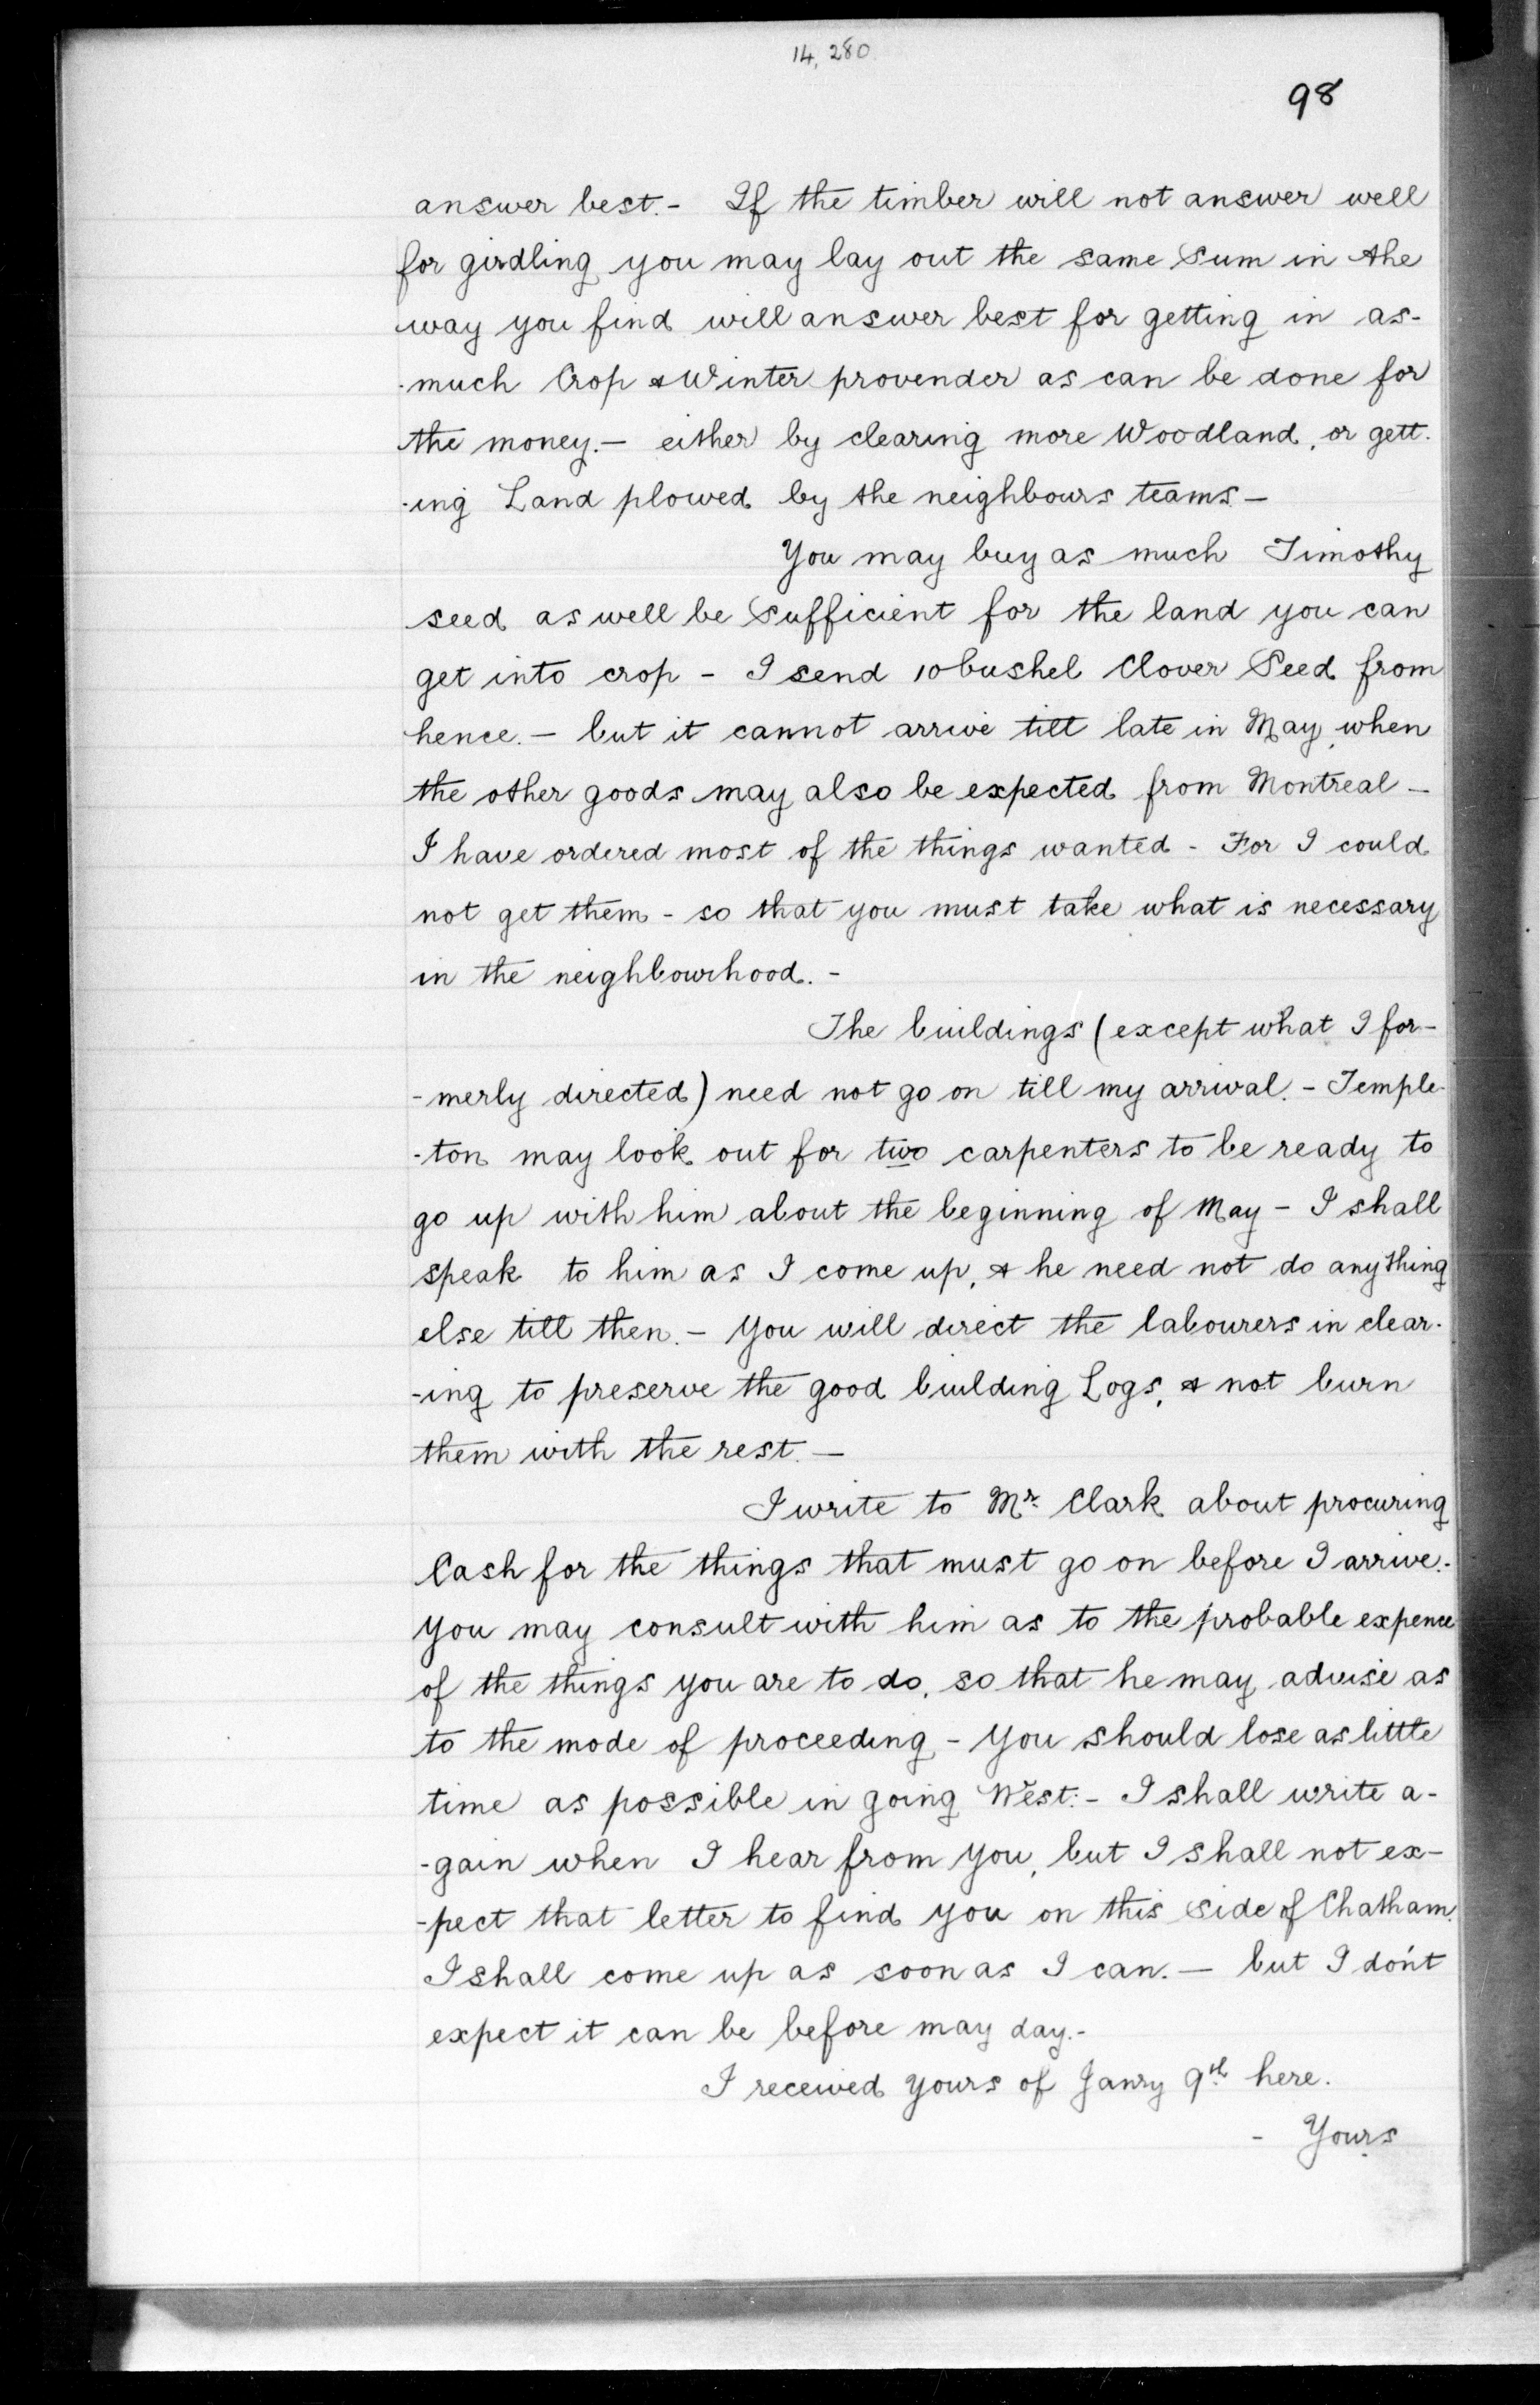 14,280
98
answer best.- If the timber will not answer well
for girdling you may lay out the same Sum in the
way you find will answer best for getting in as-
-much Crop & Winter provender as can be done for
the money.- either by clearing more Woodland, or gett-
-ing Land plowed by the neighbours teams.-
You may buy as much Timothy
seed as well be Sufficient for the land you can
get into crop - I send 10 bushel Clover Seed from
hence.- but it cannot arrive till late in May, when
the other goods may also be expected from Montreal -
I have ordered most of the things wanted - For I could
not get them - so that you must take what is necessary
in the neighbourhood.-
The buildings (except what I for-
-merly directed) need not go on till my arrival.- Temple-
-ton may look out for two carpenters to be ready to
go up with him about the beginning of May - I shall
speak to him as I come up, & he need not do anything
else till then.- You will direct the labourers in clear-
-ing to preserve the good building Logs, & not burn
them with the rest.-
I write to Mr. Clark about procuring
Cash for the things that must go on before I arrive.-
You may consult with him as to the probable expence
of the things you are to do, so that he may advise as
to the mode of proceeding - You should lose as little
time as possible in going West:- I shall write a-
-gain when I hear from you, but I shall not ex-
-pect that letter to find you on this side of Chatham.
I shall come up as soon as I can.- but I don't
expect it can be before may day.-
I received yours of Janry 9th here.
- Yours